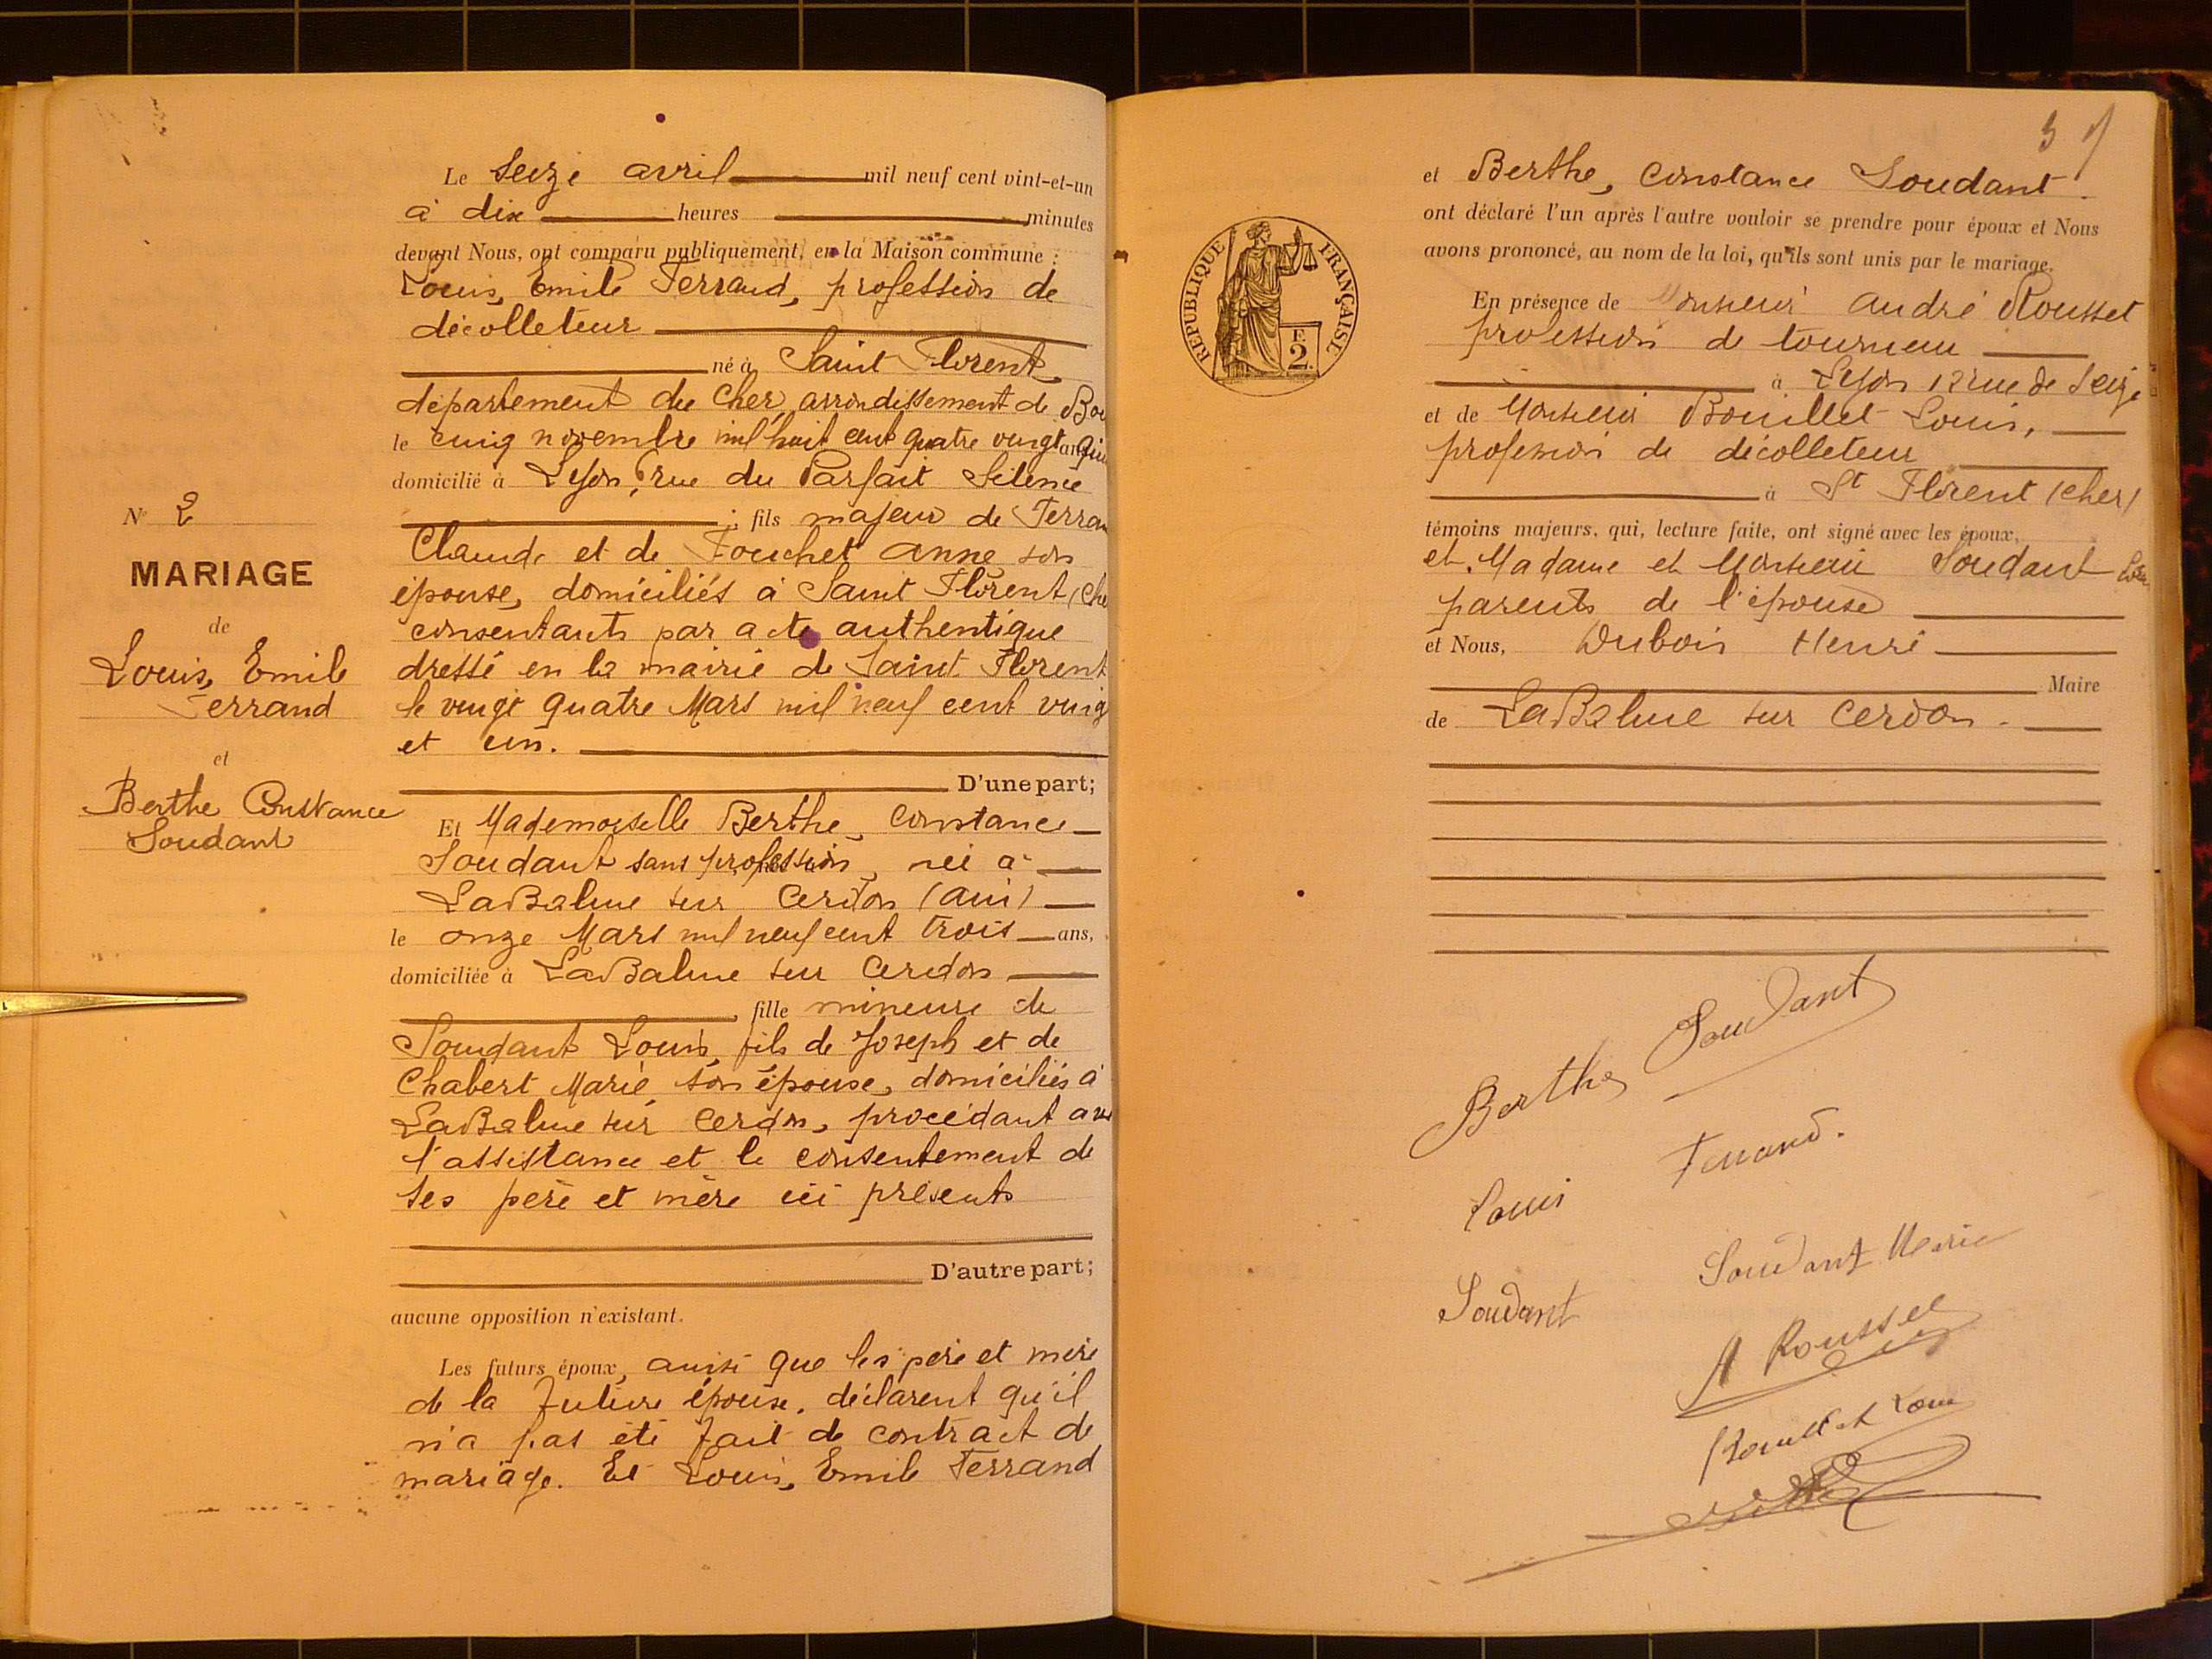 Le Seize avril mil neuf cent vint-et-un
à dix heures minutes
devant Nous, ont comparu publiquement, en la Maison commune :
Louis, Emile Ferrand, profession de
décolleteur
né à Saint Florent,
département du Cher, arrondissement de Bou
le cinq novembre mil huit cent quatre vingt
domicilié à Lyon, rue du Parfait Silence
; fils majeur de Ferran
Claude et de Fouchet Anne son
épouse, domiciliés à Saint Florent, (Che
consentants par acte authentique
dressé en la mairie de Saint Florent
le vingt quatre Mars mil neuf cent ving
et un.
D'une part;
N° 2
MARIAGE
de
Louis, Emile
Ferrand
et
Berthe Constance
Soudant
Et Mademoiselle Berthe, Constance
Soudant sans profession, née à
LaBalme sur Cerdon (Ain)
le onze Mars mil neuf cent trois ans,
domiciliée à LaBalme sur Cerdon
, fille mineure de
Soudant Louis, fils de Joseph et de
Chabert Marie son épouse, domiciliés à
LaBalme sur Cerdon, procédant avec
l'assistance et le consentement de
ses père et mère ici présents
D'autre part;
aucune opposition n'existant.
Les futurs époux, ainsi que les père et mère
de la future épouse, déclarent qu'il
n'a pas été fait de contract de
mariage. Et Louis, Emile Ferrand
et Berthe, Constance Soudant.
ont déclaré l'un après l'autre vouloir se prendre pour époux et Nous
avons prononcé, au nom de la loi, qu'ils sont unis par le mariage.
En présence de Monsieur André Rousset
profession de tourneur
à Lyon 12 rue de Seize
et de Monsieur Bouillet Louis,
profession de décolleteur
à St Florent (Cher)
témoins majeurs, qui, lecture faite, ont signé avec les époux,
et Madame et Monsieur Soudant Louis
parents de l'épouse
et Nous, Dubois Henri
Maire
de LaBalme sur Cerdon.
REPUBLIQUE FRANÇAISE
F
2.
Berthe Soudant
Louis Ferrand.
Soudant Soudant Marie
A Rousset
Bouillet Louis